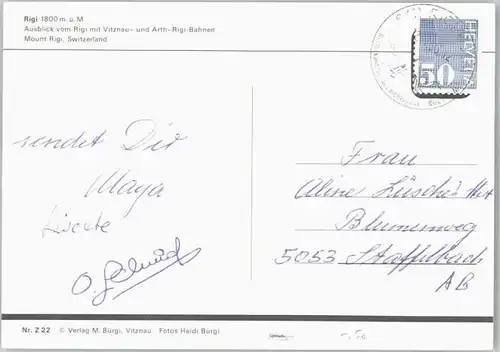 Rigi 1800 m. ü. M
Ausblick vom Rigi mit Vitznau- und Arth-Rigi-Bahnen
Mount Rigi, Switzerland
HELVETIA
50
sendet Dir
Maya
Frau
Aline
Blumenweg
5053 Staffelbach
AG
Nr. Z 22 © Verlag M. Bürgi, Vitznau Fotos Heidi Bürgi